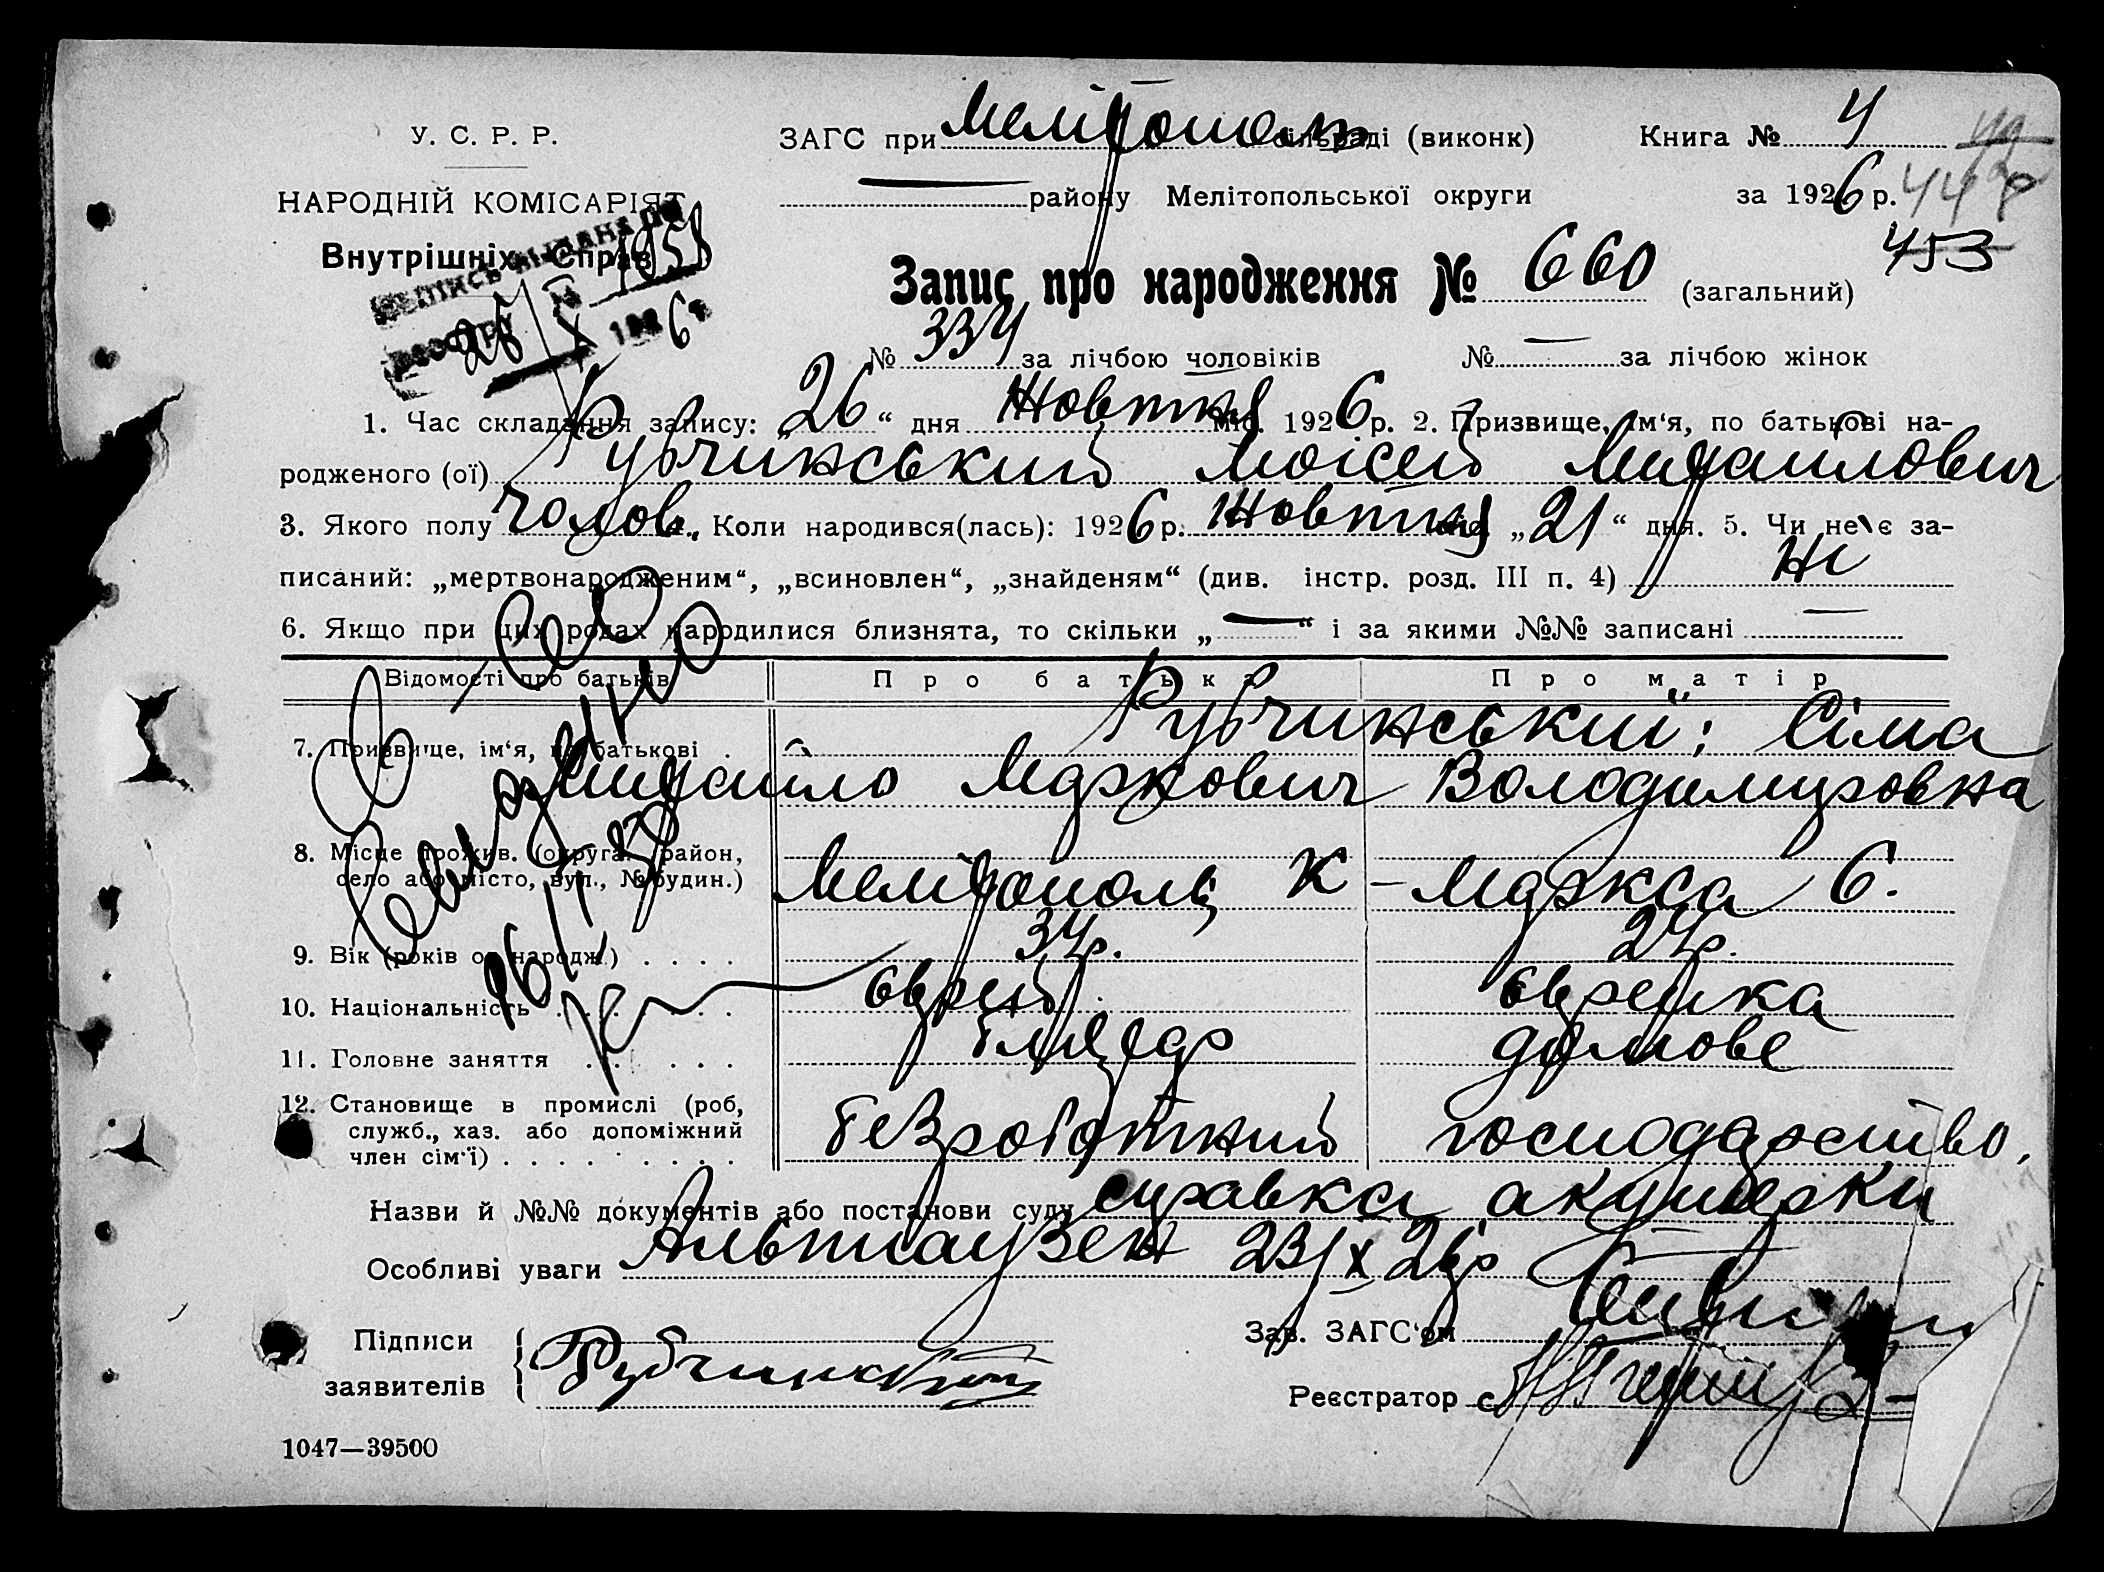 У. С. Р. Р.
НАРОДНІЙ КОМІСАРІЯТ
Внутрішніх Справ
1926 р.
ЗАГС при Мелітополь сільраді (виконк)
Книга № 4
— району Мелітопольської округи
за 1926 р. 448
453
Запис про народження № 660 (загальний)
№ 334 за лічбою чоловіків № — за лічбою жінок
1. Час складання запису: „26“ дня Жовтня міс. 1926 р. 2. Призвище, ім'я, по батькові на-
родженого (ої) Рубчинський Моісей Михайлович
3. Якого полу чолов. 4. Коли народився(лась): 1926 р. Жовтня міс. „21“ дня. 5. Чи не є за-
писаний: „мертвонародженим“, „всиновлен“, „знайденям“ (див. інстр. розд. III п. 4) Ні
6. Якщо при цих родах народилися близнята, то скільки „—“ і за якими №№ записані —
Відомості про батьків Про батька Про матір
7. Призвище, ім'я, по батькові . Рубчинський; Сіма
Михайло Маркович Володимировна
8. Місце прожив. (округа, район,
село або місто, вул., № будин.) Мелітополь К-Маркса 6.
9. Вік (років од народж.) . . . . 34р. 24р.
10. Національність . . . . . . Єврей Єврейка
11. Головне заняття . . . . . . домове
12. Становище в промислі (роб,
служб., хаз. або допоміжний
член сім'ї) . . . . . . . . . безработний господарство.
Назви й №№ документів або постанови суду справка акушерки
Особливі уваги Альтгаузен 23/X 26р
Підписи
заявителів Рубчинский
Зав. ЗАГС'ом
Реєстратор
1047—39500